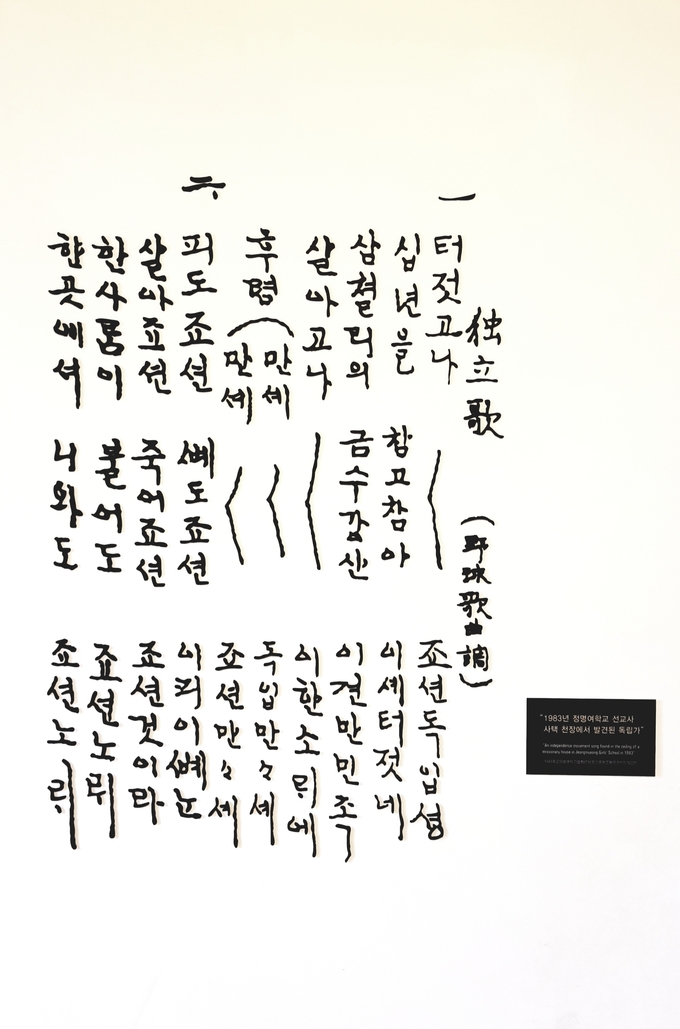 独立歌 (野球歌曲調)
一
터젓고나 〈 죠션독입셩
십년을 참고참아 이셰터젓네
삼쳘리의 금수강산 이쳔만민족
살아고나 〈 이한소리에
후렴
만셰 〈 독입만々셰
만셰 〈 죠션만々셰
二
피도죠션 뼈도죠션 이피이뼈는
살아죠션 죽어죠션 죠션것이라
한사ᄅᆞᆷ이 불어도 죠션노ᄅᆡ
한곳에셔 나와도 죠션노ᄅᆡ
"1983년 정명여학교 선교사
사택 천장에서 발견된 독립가"
"An independence movement song found in the ceiling of a
missionary house in Jeongmyeong Girls' School in 1983"